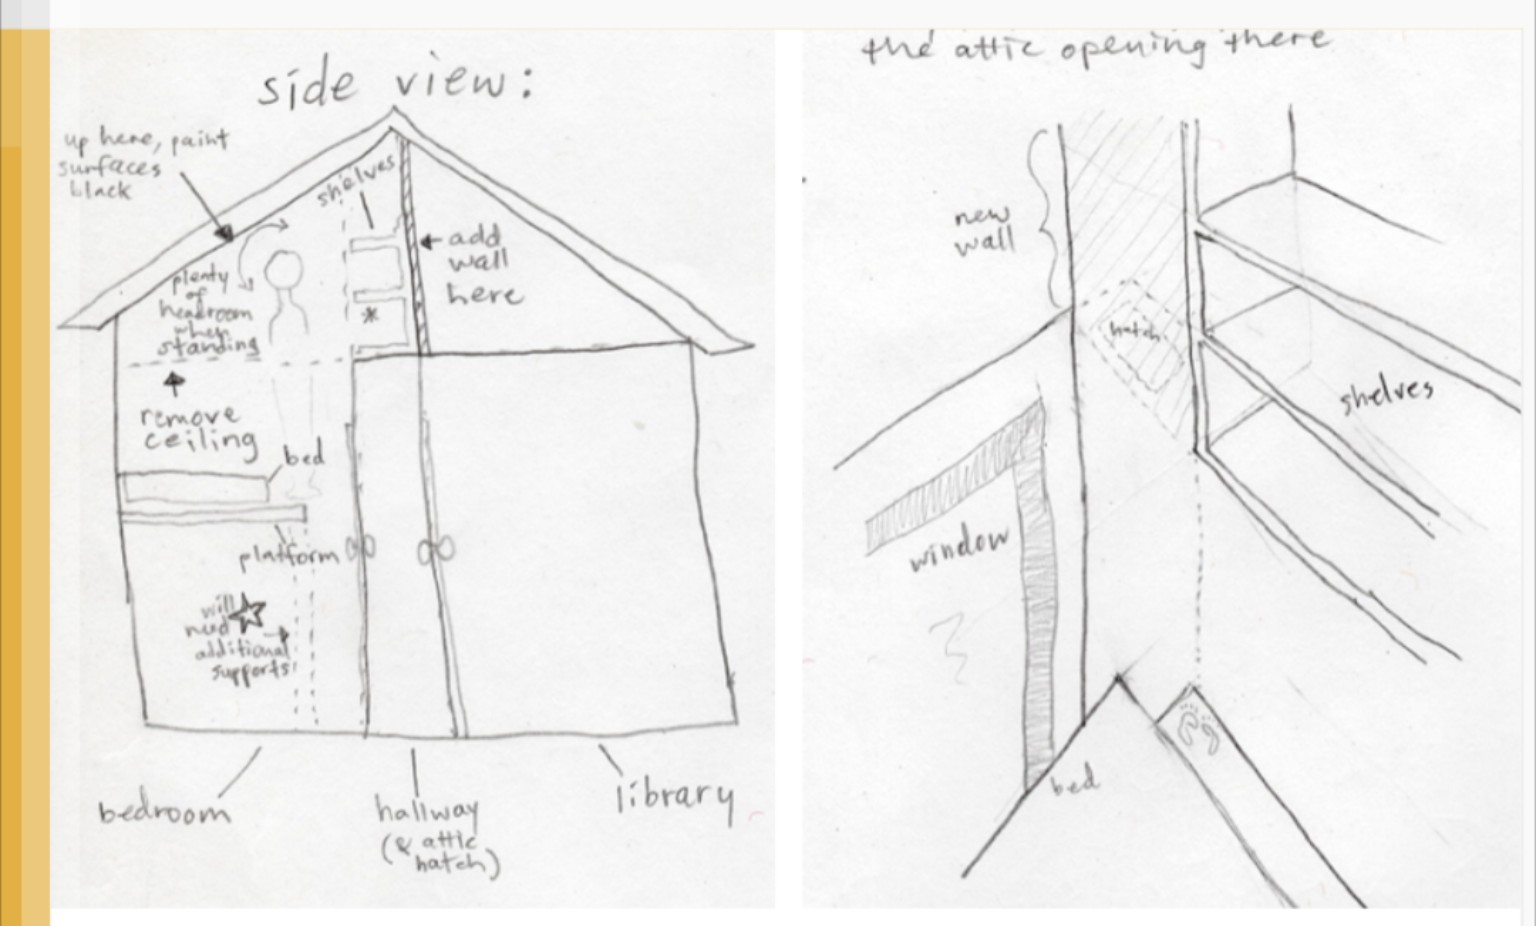 side view:
up here, paint
surfaces
black
shelves
add
wall
here
plenty
of
headroom
when
standing
*
remove
ceiling
bed
platform
will
need
additional
supports!
bedroom
hallway
(& attic
hatch)
library
the attic opening there
new
wall
hatch
shelves
window
bed